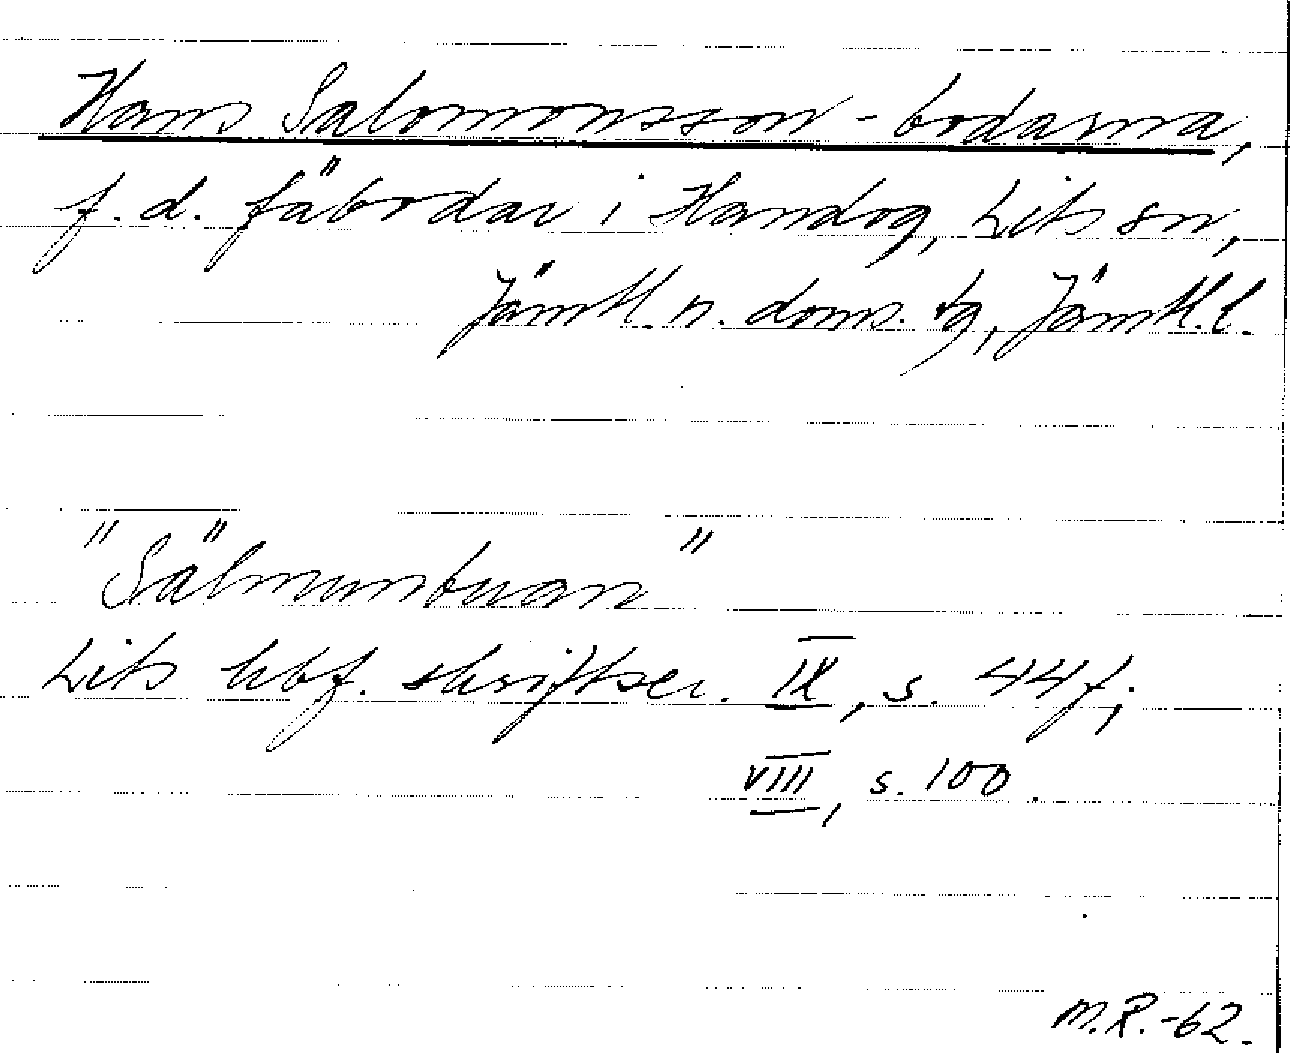 Hans Salomonsson-bodarna,
f. d. fäbodar i Handog, Lits sn,
Jämtl. n. doms. tg, Jämtl. l.
"Sälmunbuan"
Lits hbf. skriftser. IX, s. 44f;
VIII, s. 100.
M.R.-62.